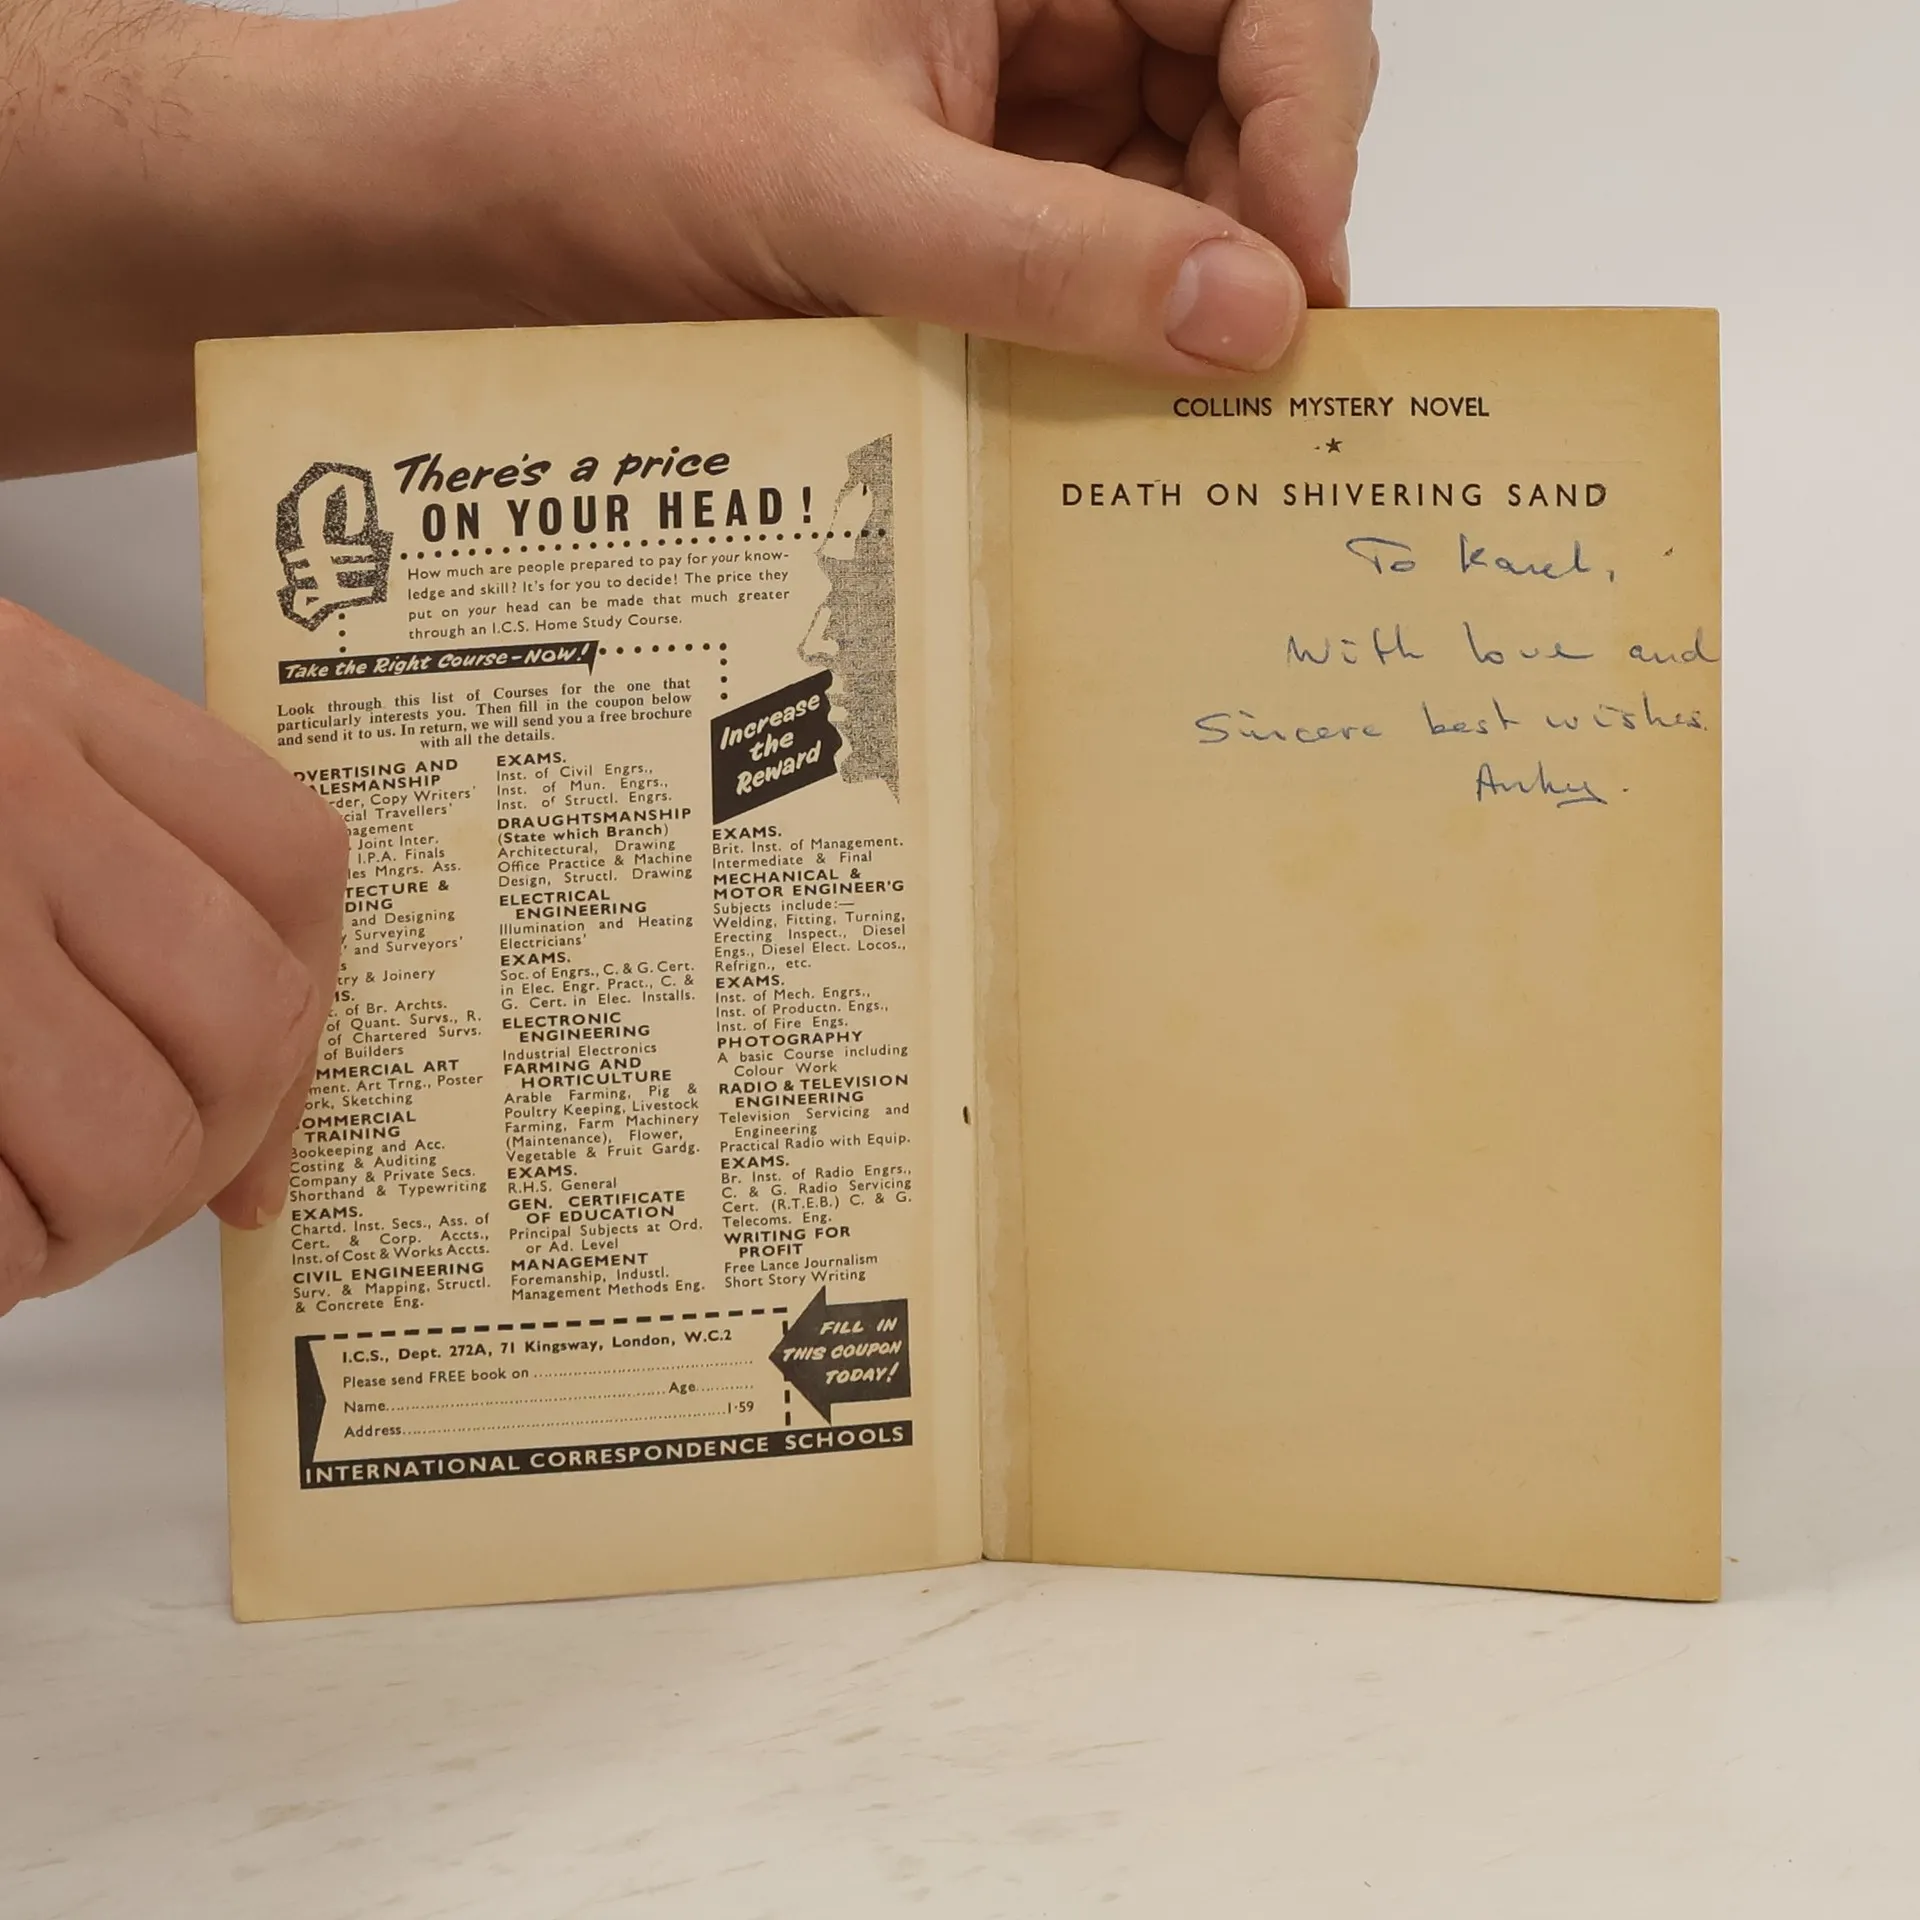 There's a price
ON YOUR HEAD!
How much are people prepared to pay for your know-
ledge and skill? It's for you to decide! The price they
put on your head can be made that much greater
through an I.C.S. Home Study Course.
Take the Right Course-NOW!
Look through this list of Courses for the one that
particularly interests you. Then fill in the coupon below
and send it to us. In return, we will send you a free brochure
with all the details.
Increase
the
Reward
DVERTISING AND
ALESMANSHIP
rder, Copy Writers'
cial Travellers'
nagement
Joint Inter.
I.P.A. Finals
les Mngrs. Ass.
TECTURE &
DING
and Designing
y Surveying
' and Surveyors'
s
try & Joinery
MS.
t. of Br. Archts.
of Quant. Survs., R.
of Chartered Survs.
of Builders
MMERCIAL ART
ment. Art Trng., Poster
ork, Sketching
OMMERCIAL
TRAINING
Bookeeping and Acc.
Costing & Auditing
Company & Private Secs.
Shorthand & Typewriting
EXAMS.
Chartd. Inst. Secs., Ass. of
Cert. & Corp. Accts.,
Inst. of Cost & Works Accts.
CIVIL ENGINEERING
Surv. & Mapping, Structl.
& Concrete Eng.
EXAMS.
Inst. of Civil Engrs.,
Inst. of Mun. Engrs.,
Inst. of Structl. Engrs.
DRAUGHTSMANSHIP
(State which Branch)
Architectural, Drawing
Office Practice & Machine
Design, Structl. Drawing
ELECTRICAL
ENGINEERING
Illumination and Heating
Electricians'
EXAMS.
Soc. of Engrs., C. & G. Cert.
in Elec. Engr. Pract., C. &
G. Cert. in Elec. Installs.
ELECTRONIC
ENGINEERING
Industrial Electronics
FARMING AND
HORTICULTURE
Arable Farming, Pig &
Poultry Keeping, Livestock
Farming, Farm Machinery
(Maintenance), Flower,
Vegetable & Fruit Gardg.
EXAMS.
R.H.S. General
GEN. CERTIFICATE
OF EDUCATION
Principal Subjects at Ord.
or Ad. Level
MANAGEMENT
Foremanship, Industl.
Management Methods Eng.
EXAMS.
Brit. Inst. of Management.
Intermediate & Final
MECHANICAL &
MOTOR ENGINEER'G
Subjects include:—
Welding, Fitting, Turning,
Erecting Inspect., Diesel
Engs., Diesel Elect. Locos.,
Refrign., etc.
EXAMS.
Inst. of Mech. Engrs.,
Inst. of Productn. Engs.,
Inst. of Fire Engs.
PHOTOGRAPHY
A basic Course including
Colour Work
RADIO & TELEVISION
ENGINEERING
Television Servicing and
Engineering
Practical Radio with Equip.
EXAMS.
Br. Inst. of Radio Engrs.,
C. & G. Radio Servicing
Cert. (R.T.E.B.) C. & G.
Telecoms. Eng.
WRITING FOR
PROFIT
Free Lance Journalism
Short Story Writing
I.C.S., Dept. 272A, 71 Kingsway, London, W.C.2
Please send FREE book on
Age
Name
Address 1·59
FILL IN
THIS COUPON
TODAY!
INTERNATIONAL CORRESPONDENCE SCHOOLS
COLLINS MYSTERY NOVEL
DEATH ON SHIVERING SAND
To Karel,
With love and
Sincere best wishes.